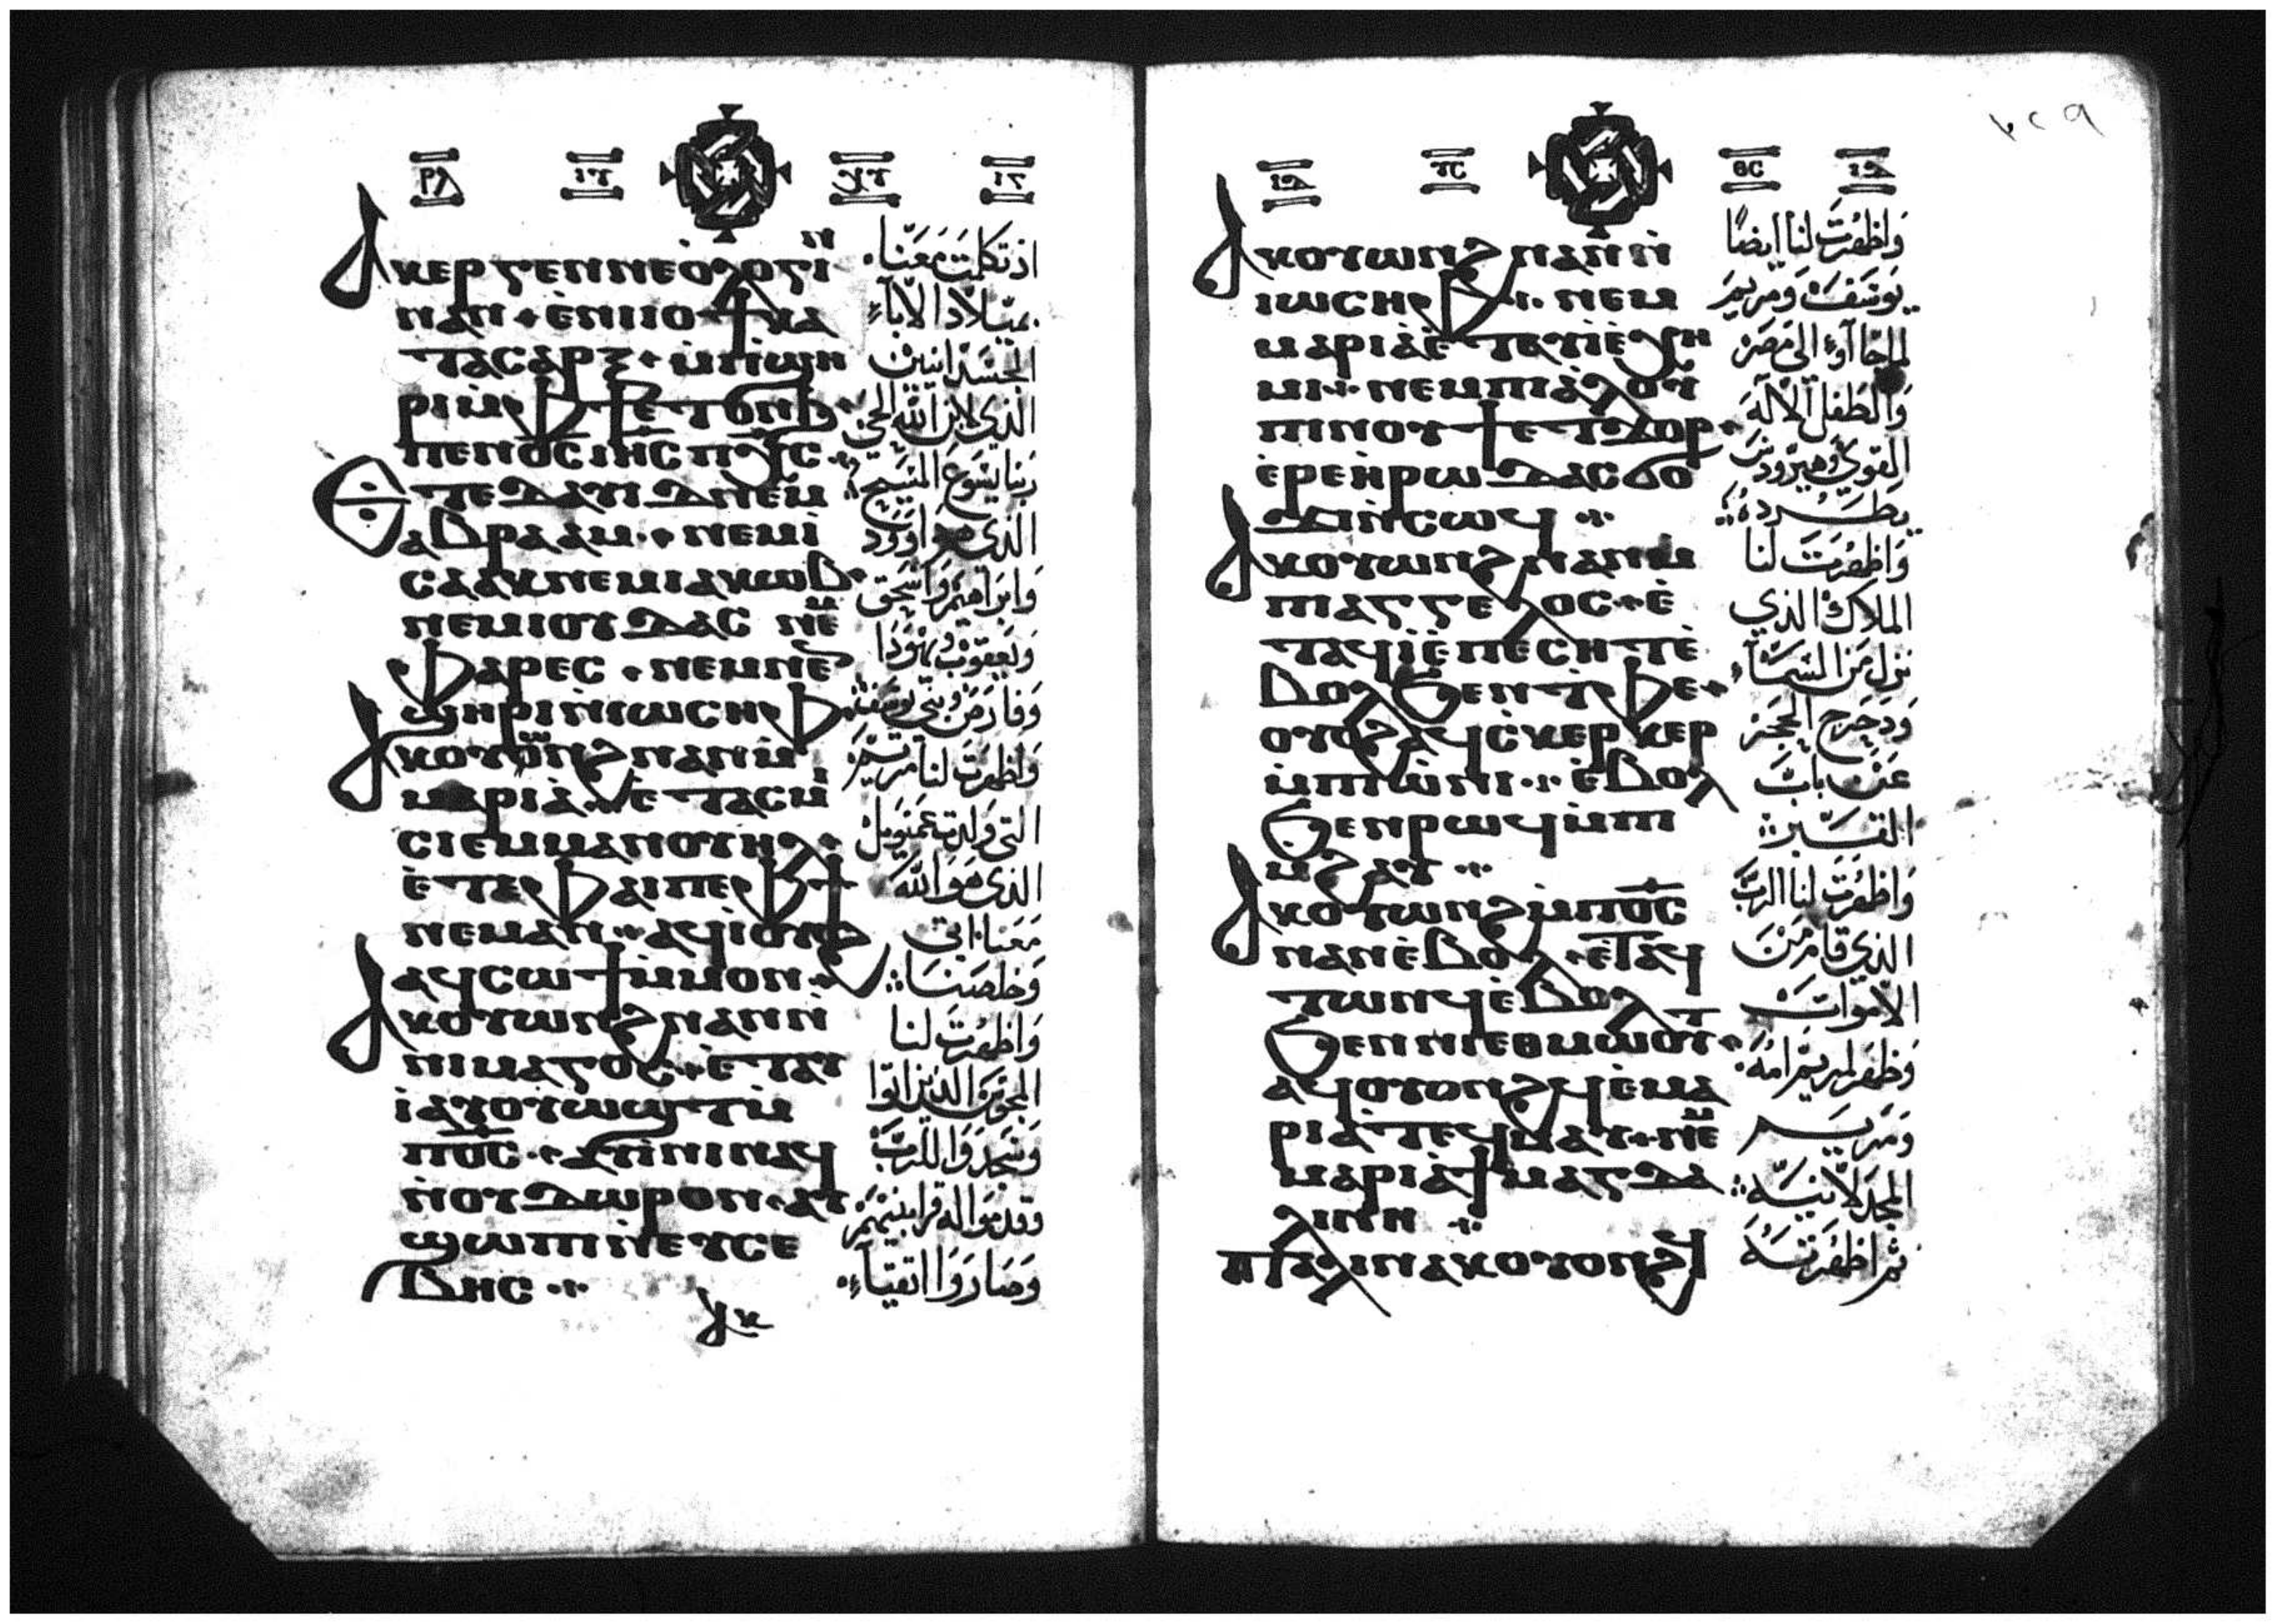 ⲣⲗ ⲓⲩ ⲭⲩ ⲓⲅ
Ⲁⲕⲉⲣⲅⲉⲛⲛⲉⲟⲗⲟⲅⲓⲛ
ⲛⲁⲛ ⲉ̀ⲛⲓⲓⲟϯ ⲕⲁ
ⲧⲁⲥⲁⲣⲝ ⲙ̀ⲡϣⲏ
ⲣⲓⲙ̀ⲫϯ ⲉⲧⲟⲛϧ
ⲡⲉⲛⲟ̅ⲥ̅ ⲓⲏ̅ⲥ̅ ⲡⲭ̅ⲥ̅
Ⲉⲧⲉⲇⲁⲩⲓⲇ ⲛⲉⲙ
ⲁⲃⲣⲁⲁⲙ ⲛⲉⲙⲓ
ⲥⲁⲁⲕ ⲛⲉⲙⲓⲁⲕⲱⲃ
ⲛⲉⲙⲓⲟⲩⲇⲁⲥ ⲛⲉⲙ
ⲫⲁⲣⲉⲥ ⲛⲉⲙⲛⲉⲛ
ϣⲏⲣⲓⲛ̀ⲓⲱⲥⲏⲫ
Ⲁⲕⲟⲩⲟⲛϩ ⲛⲁⲛⲙ̀
ⲙⲁⲣⲓⲁ̀ ⲉⲧⲁⲥⲙⲓ
ⲥⲓⲉⲙⲙⲁⲛⲟⲩⲏⲗ
ⲉ̀ⲧⲉⲫⲁⲓⲡⲉⲫϯ
ⲛⲉⲙⲁⲛ ⲁϥⲓ̀ⲟⲩⲟϩ
ⲁϥⲥⲱϯⲙ̀ⲙⲟⲛ
Ⲁⲕⲟⲩⲱⲛϩ ⲛⲁⲛⲛ̀
ⲛⲓⲙⲁⲅⲟⲥ ⲉ̀ⲧⲁⲩ
ⲓ̀ⲁⲩⲟⲩⲱϣⲧⲙ̀
ⲡⲟ̅ⲥ̅ ⲁⲩⲓ̀ⲛⲓⲛⲁϥ
ⲛ̀ⲟⲩⲇⲱⲣⲟⲛ ⲁⲩ
ϣⲱⲡⲓⲛ̀ⲉⲩⲥⲉ
ⲃⲏⲥ
Ⲁⲕ
اذ تكلمت معنا
بميلاد الاباء
الجسدانيين
الذي لابن الله الحي
ربنا يسوع المسيح
الذي هو داوود
وابراهيم واسحق
ويعقوب ويهودا
وفارص وبني يوسف
واظهرت لنا مريم
التي ولدت عمنويل
الذي هو الله
معنا اتى
وخلصنا
واظهرت لنا
المجوس الذين اتوا
وسجدوا للرب
وقدموا له قرابينهم
وصاروا اتقياء
ⲓⲇ ⲩⲥ ⲑⲥ ⲓⲇ
Ⲁⲕⲟⲩⲱⲛϩ ⲛⲁⲛⲛ̀
ⲓⲱⲥⲏⲫ ⲛⲉⲙ
ⲙⲁⲣⲓⲁ̀ ⲉⲧⲁⲩⲓ̀ⲉ̀ⲭⲏ
ⲙⲓ ⲛⲉⲙⲡⲁ̀ⲗⲟⲩ
ⲡⲓⲛⲟⲩϯ ⲉⲧϫⲟⲣ
ⲉ̀ⲣⲉⲏ̀ⲣⲱⲇⲁⲥ ϭⲟ
ϫⲓⲛ̀ⲥⲱϥ
Ⲁⲕⲟⲩⲱⲛϩ ⲛⲁⲛⲙ
ⲡⲁⲅⲅⲉⲗⲟⲥ ⲉ̀
ⲧⲁϥⲓ̀ⲉ̀ⲡⲉⲥⲏⲧ ⲉ̀
ⲃⲟⲗϧⲉⲛⲧⲫⲉ
ⲟⲩⲟϩ ⲁϥⲥ̀ⲕⲉⲣⲕⲉⲣ
ⲙ̀ⲡⲱ̀ⲛⲓ ⲉ̀ⲃⲟⲗ
ϧⲉⲛⲣⲱϥⲙ̀ⲡⲓ
ⲙ̀ϩⲁⲩ
Ⲁⲕⲟⲩⲱⲛϩ ⲙ̀ⲡⲟ̅ⲥ̅
ⲛⲁⲛⲉ̀ⲃⲟⲗ ⲉ̀ⲧⲁϥ
ⲧⲱⲛϥⲉ̀ⲃⲟⲗ
ϧⲉⲛⲛⲓⲉⲑⲙⲱⲟⲩⲧ
ⲁϥⲟⲩⲟⲛϩϥⲉ̀ⲙⲁ
ⲣⲓⲁ̀ ⲧⲉϥⲙⲁⲩ ⲛⲉⲙ
ⲙⲁⲣⲓⲁ̀ ϯⲙⲁⲅⲇⲁ
ⲗⲓⲛⲏ
ⲡⲁⲗⲓⲛⲁⲕⲟⲩⲟⲛϩϥ
واظهرت لنا ايضا
يوسف ومريم
لما جاآوا الى مصر
والطفل الاله
القوي وهيرودس
يطرده
واظهرت لنا
الملاك الذي
نزل من السماء
ودحرج الحجر
عن باب
القبر
واظهرت لنا الرب
الذي قام من
الاموات
وظهر لمريم امه
ومريم
المجدلانية
ثم اظهرته